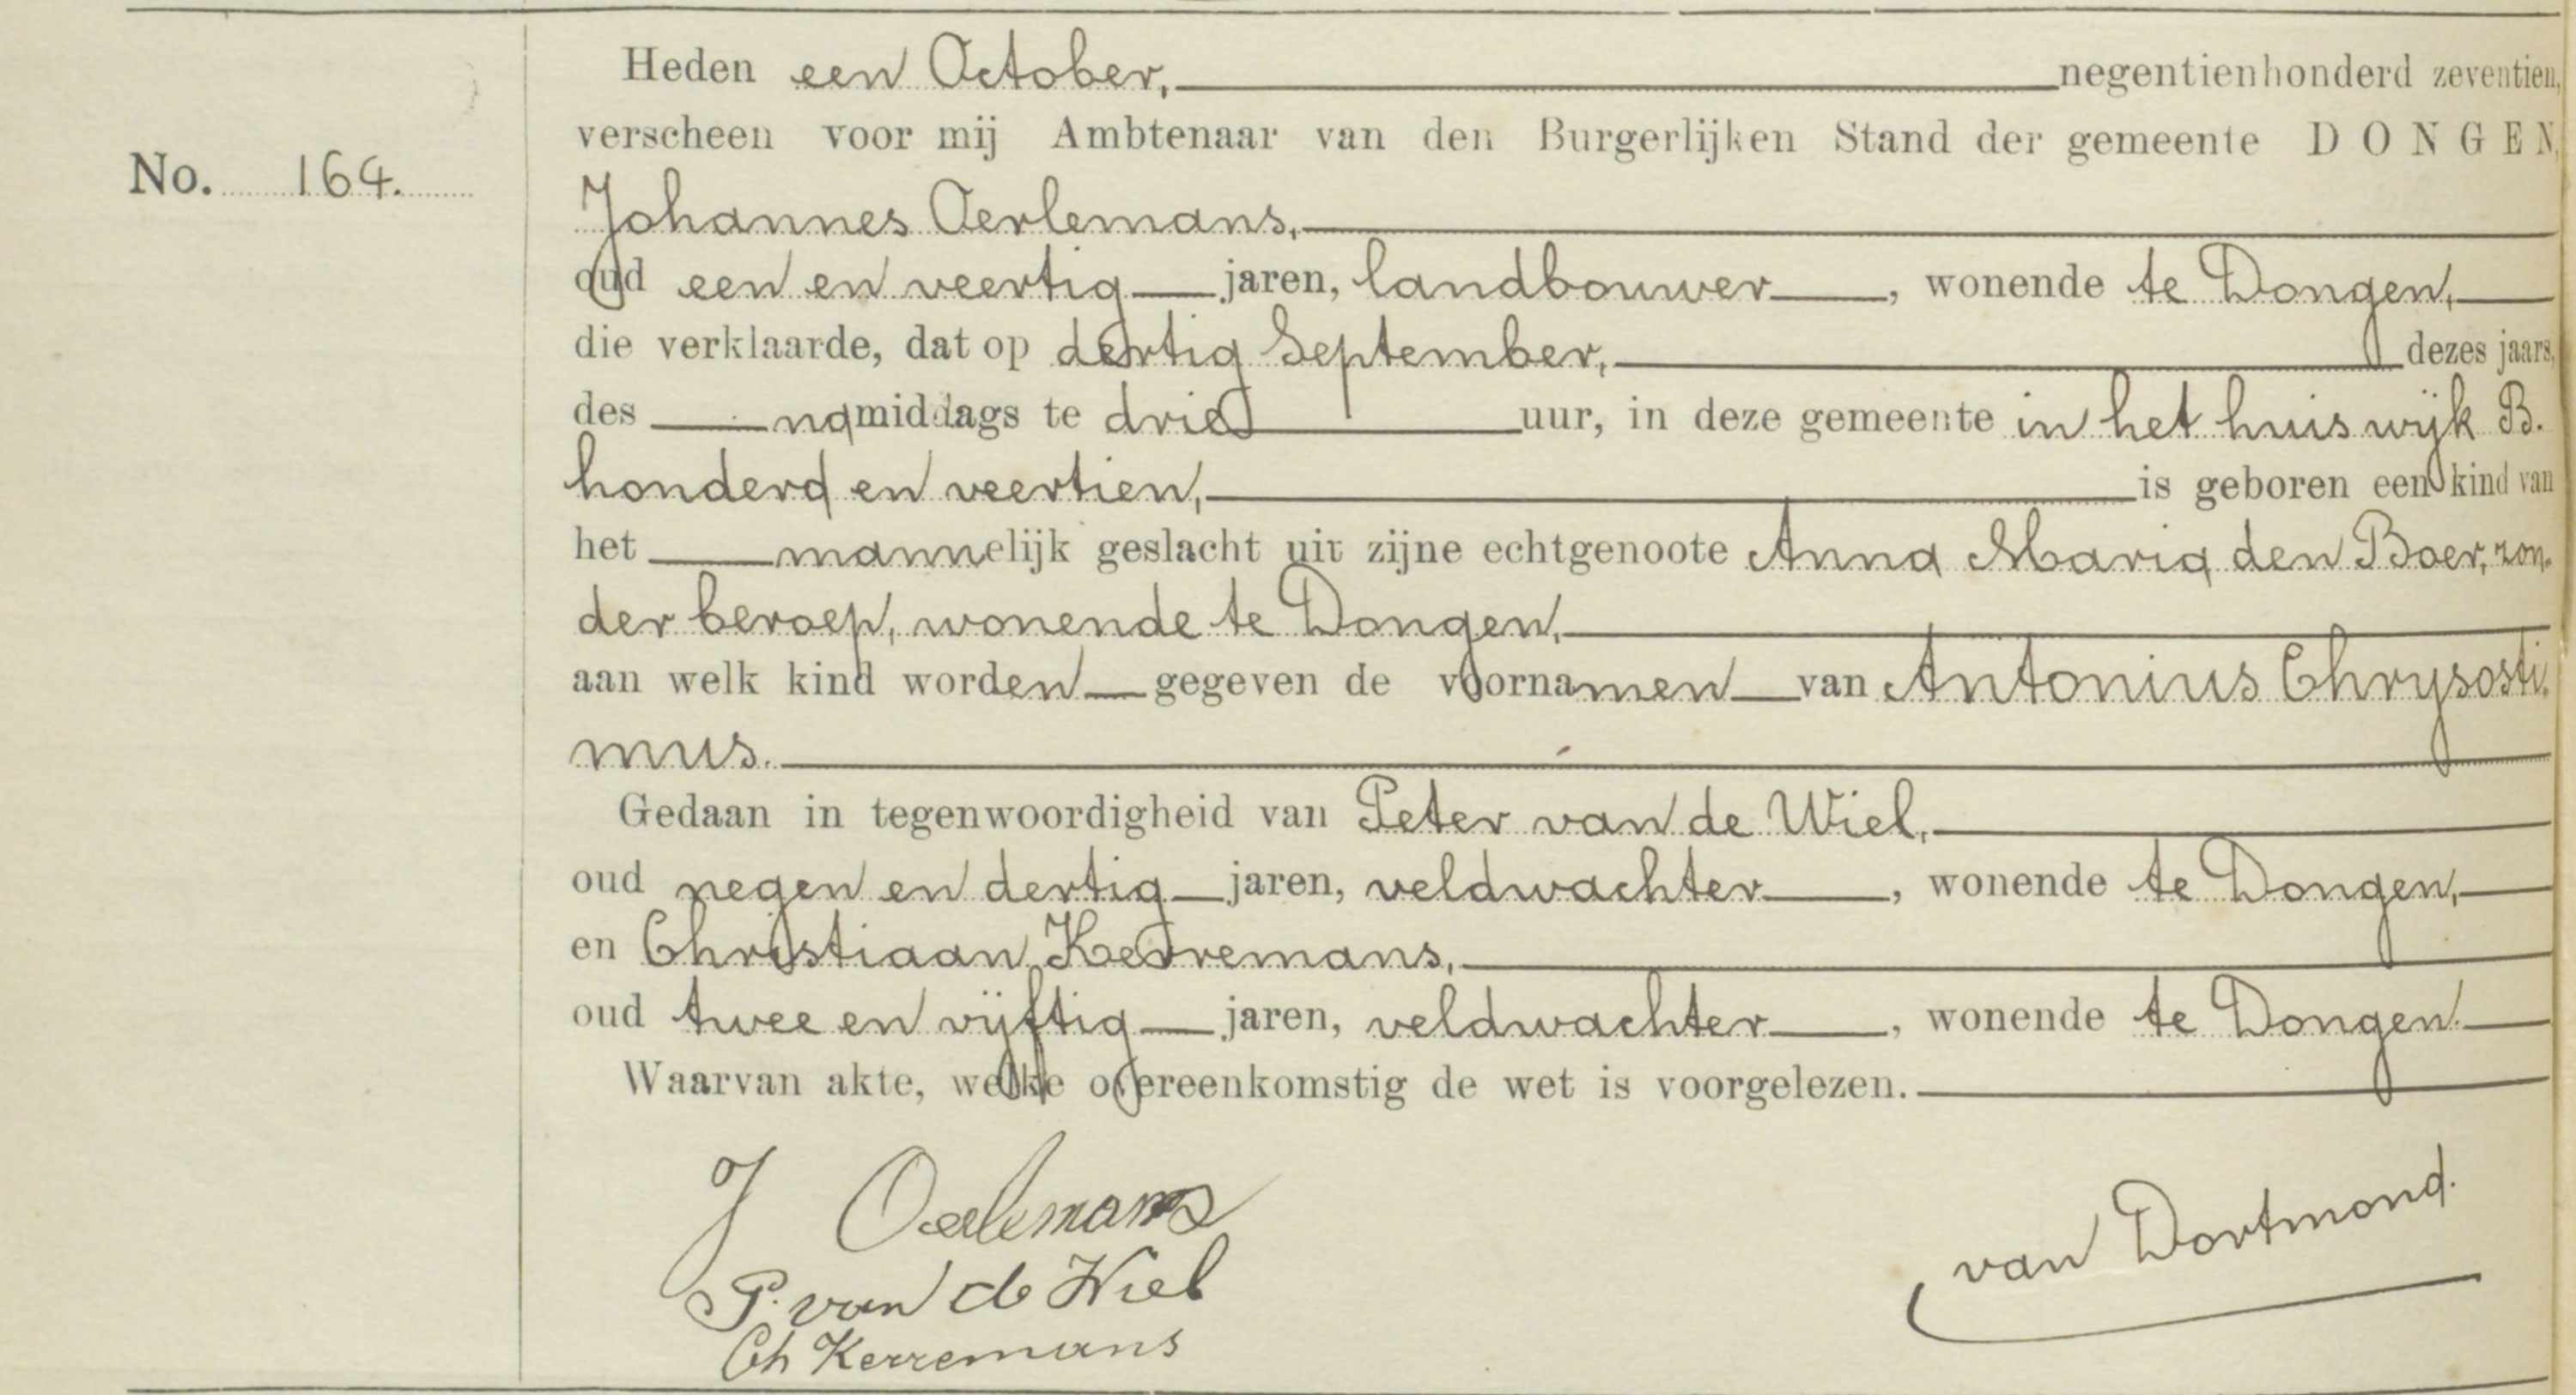 Heden een October, negentienhonderd zeventien,
verscheen voor mij Ambtenaar van den Burgerlijken Stand der gemeente DONGEN,
No. 164.
Johannes Oerlemans,
oud een en veertig jaren, landbouwer, wonende te Dongen,
die verklaarde, dat op dertig September, dezes jaars,
des namiddags te drie uur, in deze gemeente in het huis wijk B.
honderd en veertien, is geboren een kind van
het mannelijk geslacht uit zijne echtgenoote Anna Maria den Boer, zon-
der beroep, wonende te Dongen,
aan welk kind worden gegeven de voornamen van Antonius Chrysosti-
mus.
Gedaan in tegenwoordigheid van Peter van de Wiel,
oud negen en dertig jaren, veldwachter, wonende te Dongen,
en Christiaan Kerremans,
oud twee en vijftig jaren, veldwachter, wonende te Dongen.
Waarvan akte, welke overeenkomstig de wet is voorgelezen.
J Oerlemans
van Dortmond.
P. van de Wiel
Ch Kerremans